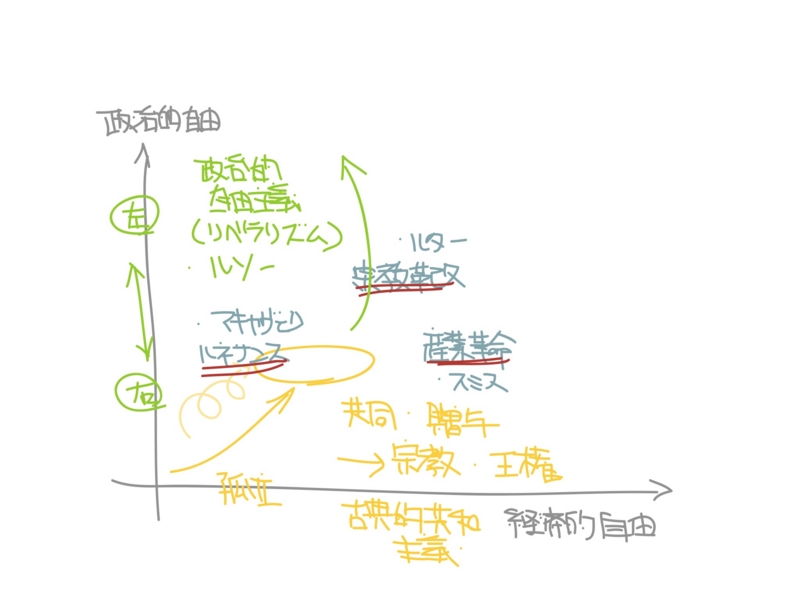 政治的自由
政治的
自由主義
(リベラリズム)
・ルソー
左
・ルター
宗教改革
・マキャヴェリ
ルネサンス
産業革命
・スミス
右
共同・贈与
→宗教・王権
孤立
古典的共和
主義
経済的自由